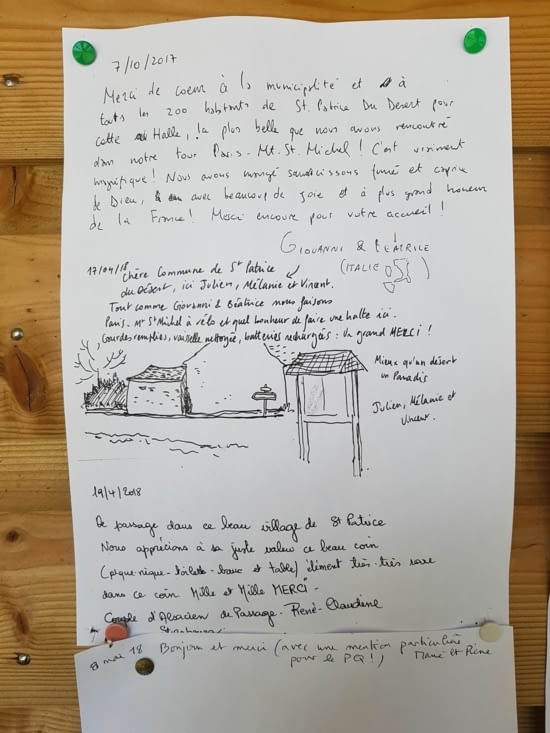 7/10/2017
Merci de coeur à la municipalité et à
touts les 200 habitants de St. Patrice Du Desert pour
cette Halle, la plus belle que nous avons rencontré
dans notre tour Paris - Mt. St. Michel! C'est vraiment
magnifique! Nous avons mangé saucissons fumé et
de Dieu, avec beaucoup de joie et à plus grand honeur
de la France! Merci encoure pour votre accueil!
GIOVANNI & BEATRICE
(ITALIE)
17/04/18 Chère Commune de St Patrice
du Désert, ici Julien, Mélanie et Vincent.
Tout comme Giovanni & Béatrice nous faisons
Paris - Mt St Michel à vélo et quel bonheur de faire une halte ici.
Gourdes remplies, vaisselle nettoyée, batteries rechargées : Un grand MERCI!
Mieux qu'un désert
un Paradis
Julien, Mélanie et
Vincent.
19/4/2018
De passage dans ce beau village de St Patrice
Nous apprécions à sa juste valeur ce beau coin
(pique-nique - toilette - banc et table) élément très-très rare
dans ce coin Mille et Mille MERCI -
Couple d'Alsacien de Passage - René-Claudine
Strasbourg
8 mai 18 Bonjour et merci (avec une mention particulière
pour le PQ!) et